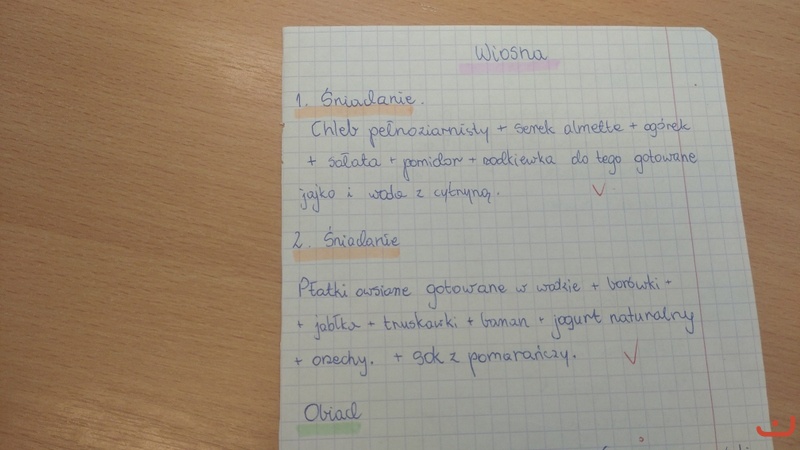 Wiosna
1. Śniadanie.
Chleb pełnoziarnisty + serek almette + ogórek
+ sałata + pomidor + rodkiewka do tego gotowane
jajko i woda z cytryną.
2. Śniadanie
Płatki owsiane gotowane w wodzie + borówki +
+ jabłka + truskawki + banan + jogurt naturalny
+ orzechy. + sok z pomarańczy.
Obiad